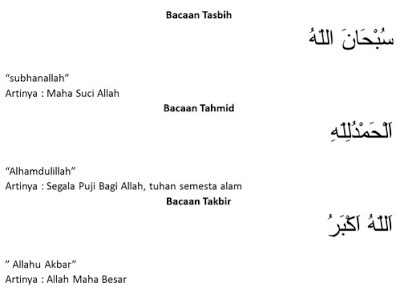 Bacaan Tasbih
سُبْحَانَ اللّٰهُ
“subhanallah”
Artinya : Maha Suci Allah
Bacaan Tahmid
اَلْحَمْدُلِلّٰهِ
“Alhamdulillah”
Artinya : Segala Puji Bagi Allah, tuhan semesta alam
Bacaan Takbir
اَللّٰهُ اَكْبَرُ
” Allahu Akbar“
Artinya : Allah Maha Besar